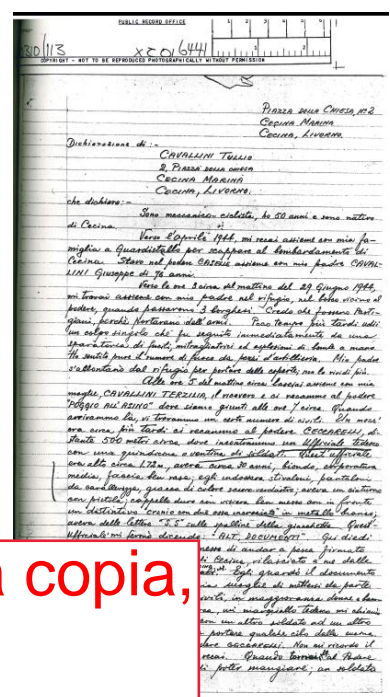 PUBLIC RECORD OFFICE
1 2 3 4 5 6
310/113 XC016441 1 2
COPYRIGHT - NOT TO BE REPRODUCED PHOTOGRAPHICALLY WITHOUT PERMISSION
PIAZZA DELLA CHIESA, No 2
CECINA MARINA
CECINA, LIVORNO.
Dichiarazione di :-
CAVALLINI TULLIO
2, PIAZZA DELLA CHIESA
CECINA MARINA
CECINA, LIVORNO.
che dichiaro:-
Sono meccanico-ciclista, ho 50 anni e sono nativo
di Cecina.
Verso l'aprile 1944, mi recai assieme con mia fa-
miglia a Guardistallo per scappare al bombardamento di
Cecina. Stavo nel podere assieme con mio padre CAVAL-
LINI Giuseppe di 76 anni.
Verso le ore 3 circa del mattino del 29 Giugno 1944,
mi trovai assieme con mio padre nel rifugio, nel bosco vicino al
podere, quando passarono 3 borghesi. Credo che fossero Parti-
giani, perchè portavano delle armi. Poco tempo più tardi udii
un colpo singolo che fu seguito immediatamente da una
sparatoria di fucili, mitragliatrici ed esplosioni di bombe a mano.
Ho sentito pure il rumore di fuoco da pezzi d'artiglieria. Mio padre
s'allontanò dal rifugio per portare delle coperte; non lo vividi più.
Alle ore 5 del mattino circa lasciai assieme con mia
moglie, CAVALLINI TERZILIA, il ricovero e ci recammo al podere
"POGGIO ALL'ASINO" dove siamo giunti alle ore 7 circa. Quando
arrivammo là, vi trovammo un certo numero di civili. Un mezz'
ora circa più tardi ci recammo al podere CECCARELLI, di
stante 500 metri circa, dove incontrammo un Ufficiale tedesco
con una quindicina o ventina di soldati. Quest'ufficiale
era alto circa 1.72m, aveva circa 30 anni, biondo, corporatura
media, faccia ben rasa; egli indossava stivaloni, pantaloni
da cavallerizzo, giacca di colore scuro mediastro; aveva un cinturone
con pistola; cappello duro con visiera ben messo con in fronte
un distintivo "cranio con due ossa incrociate" in metallo bianco;
aveva delle lettere "S.S" sulle spalline della giacchetta. Quest'
ufficiale mi fermò dicendo: "ALT, DOCUMENTI" Gli diedi
messo di andar a pesca firmato
di Cecina, rilasciato a me dalle
Egli guardò il documento
mia moglie di metterci da parte
civili, in maggioranza donne e bam-
un maresciallo tedesco mi chiamò
con un altro soldato ed un altro
portare qualche cibo dalla cucina
CECCARELLI. Non mi ricordo il
recai. Quando tornai al Podere
di poter mangiare; un soldato
a copia,